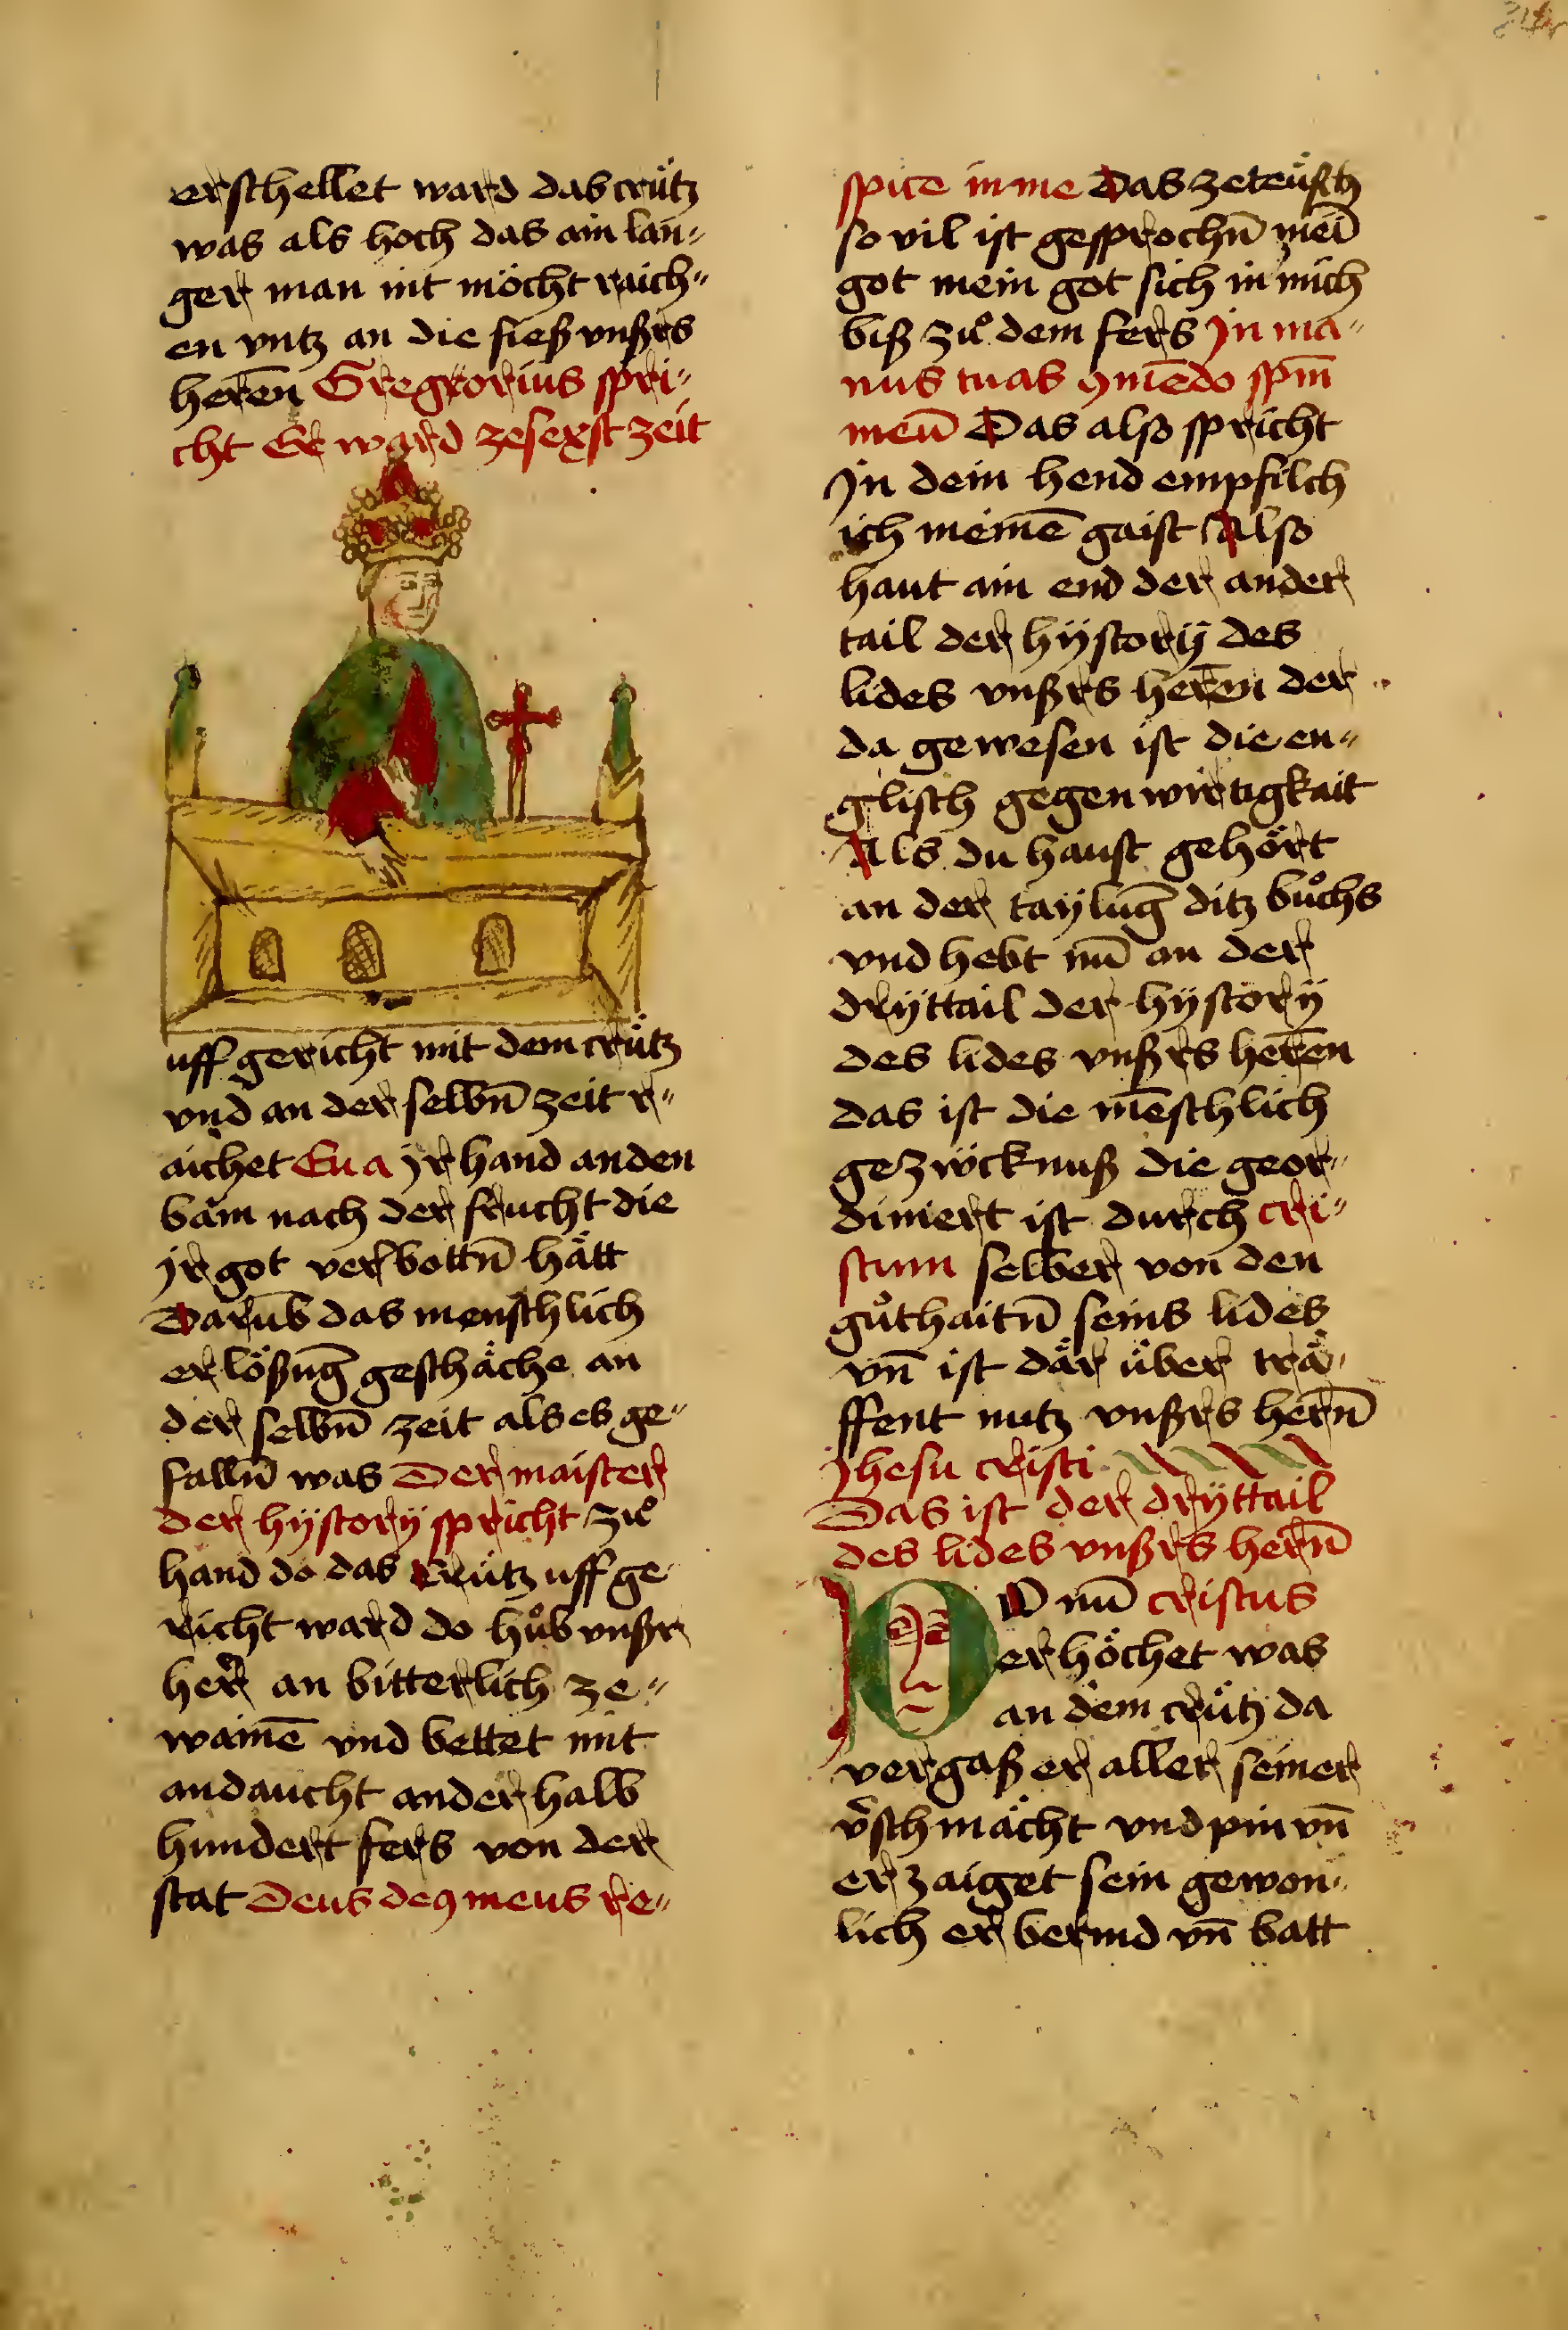 erschellet ward das crütz
was als hoch das ain lan„
ger man nit möcht raich„
en vntz an die fieß vnßrs
herēn Gregrorius spri„
cht Er ward zesexst zeit
uff gericht mit dem crütz
vnd an der selbn̄ zeit r„
aichet Eua jr hand an den
bäm nach der frucht die
jr got verbottn̄ hätt
Darūb das menschlich
erlößūg geschäche an
der selbn̄ zeit als es ge„
falln̄ was Der maister
der hÿstorÿ spricht zuͦ
hand do das crütz uff ge
richt ward do huͦb vnßr
her̄ an bitterlich ze„
wainē vnd bettet mit
andaucht anderhalb
hundert fers von der
stat Deus deꝯ meus re„
spice in me Das zeteüsch
so vil ist gesprochn̄ mei̅
got mein got sich in mich
biß zuͦ dem fers Jn ma„
nus tuas ꝯmēdo spm̄
meū Das also spricht
Jn dein hend empfilch
ich meinē gaist Also
haut ain end der ander
tail der hÿstorÿ des
lides vnßrs herēn der
da gewesen ist die en„
glisch gegenwirtigkait
Als du haust gehört
an der taÿlūg ditz buͦchs
vnd hebt nū an der
drÿttail der hÿstorÿ
des lides vnßrs herēn
das ist die mēschlich
gezwicknuß die geor„
diniert ist durch cri„
stum selber von den
guͦthaitn̄ seins lides
vn̄ ist där über trä„
ffent nutz vnßrs hern̄
jhesu cristi
Das ist der drÿttail
des lides vnßrs hern̄
DO nū cristus
erhöchet was
an dem crütz da
vergaß er aller seiner
v̄schmächt vnd pin vn̄
erzaiget sein gewon„
lich erbermd vn̄ batt